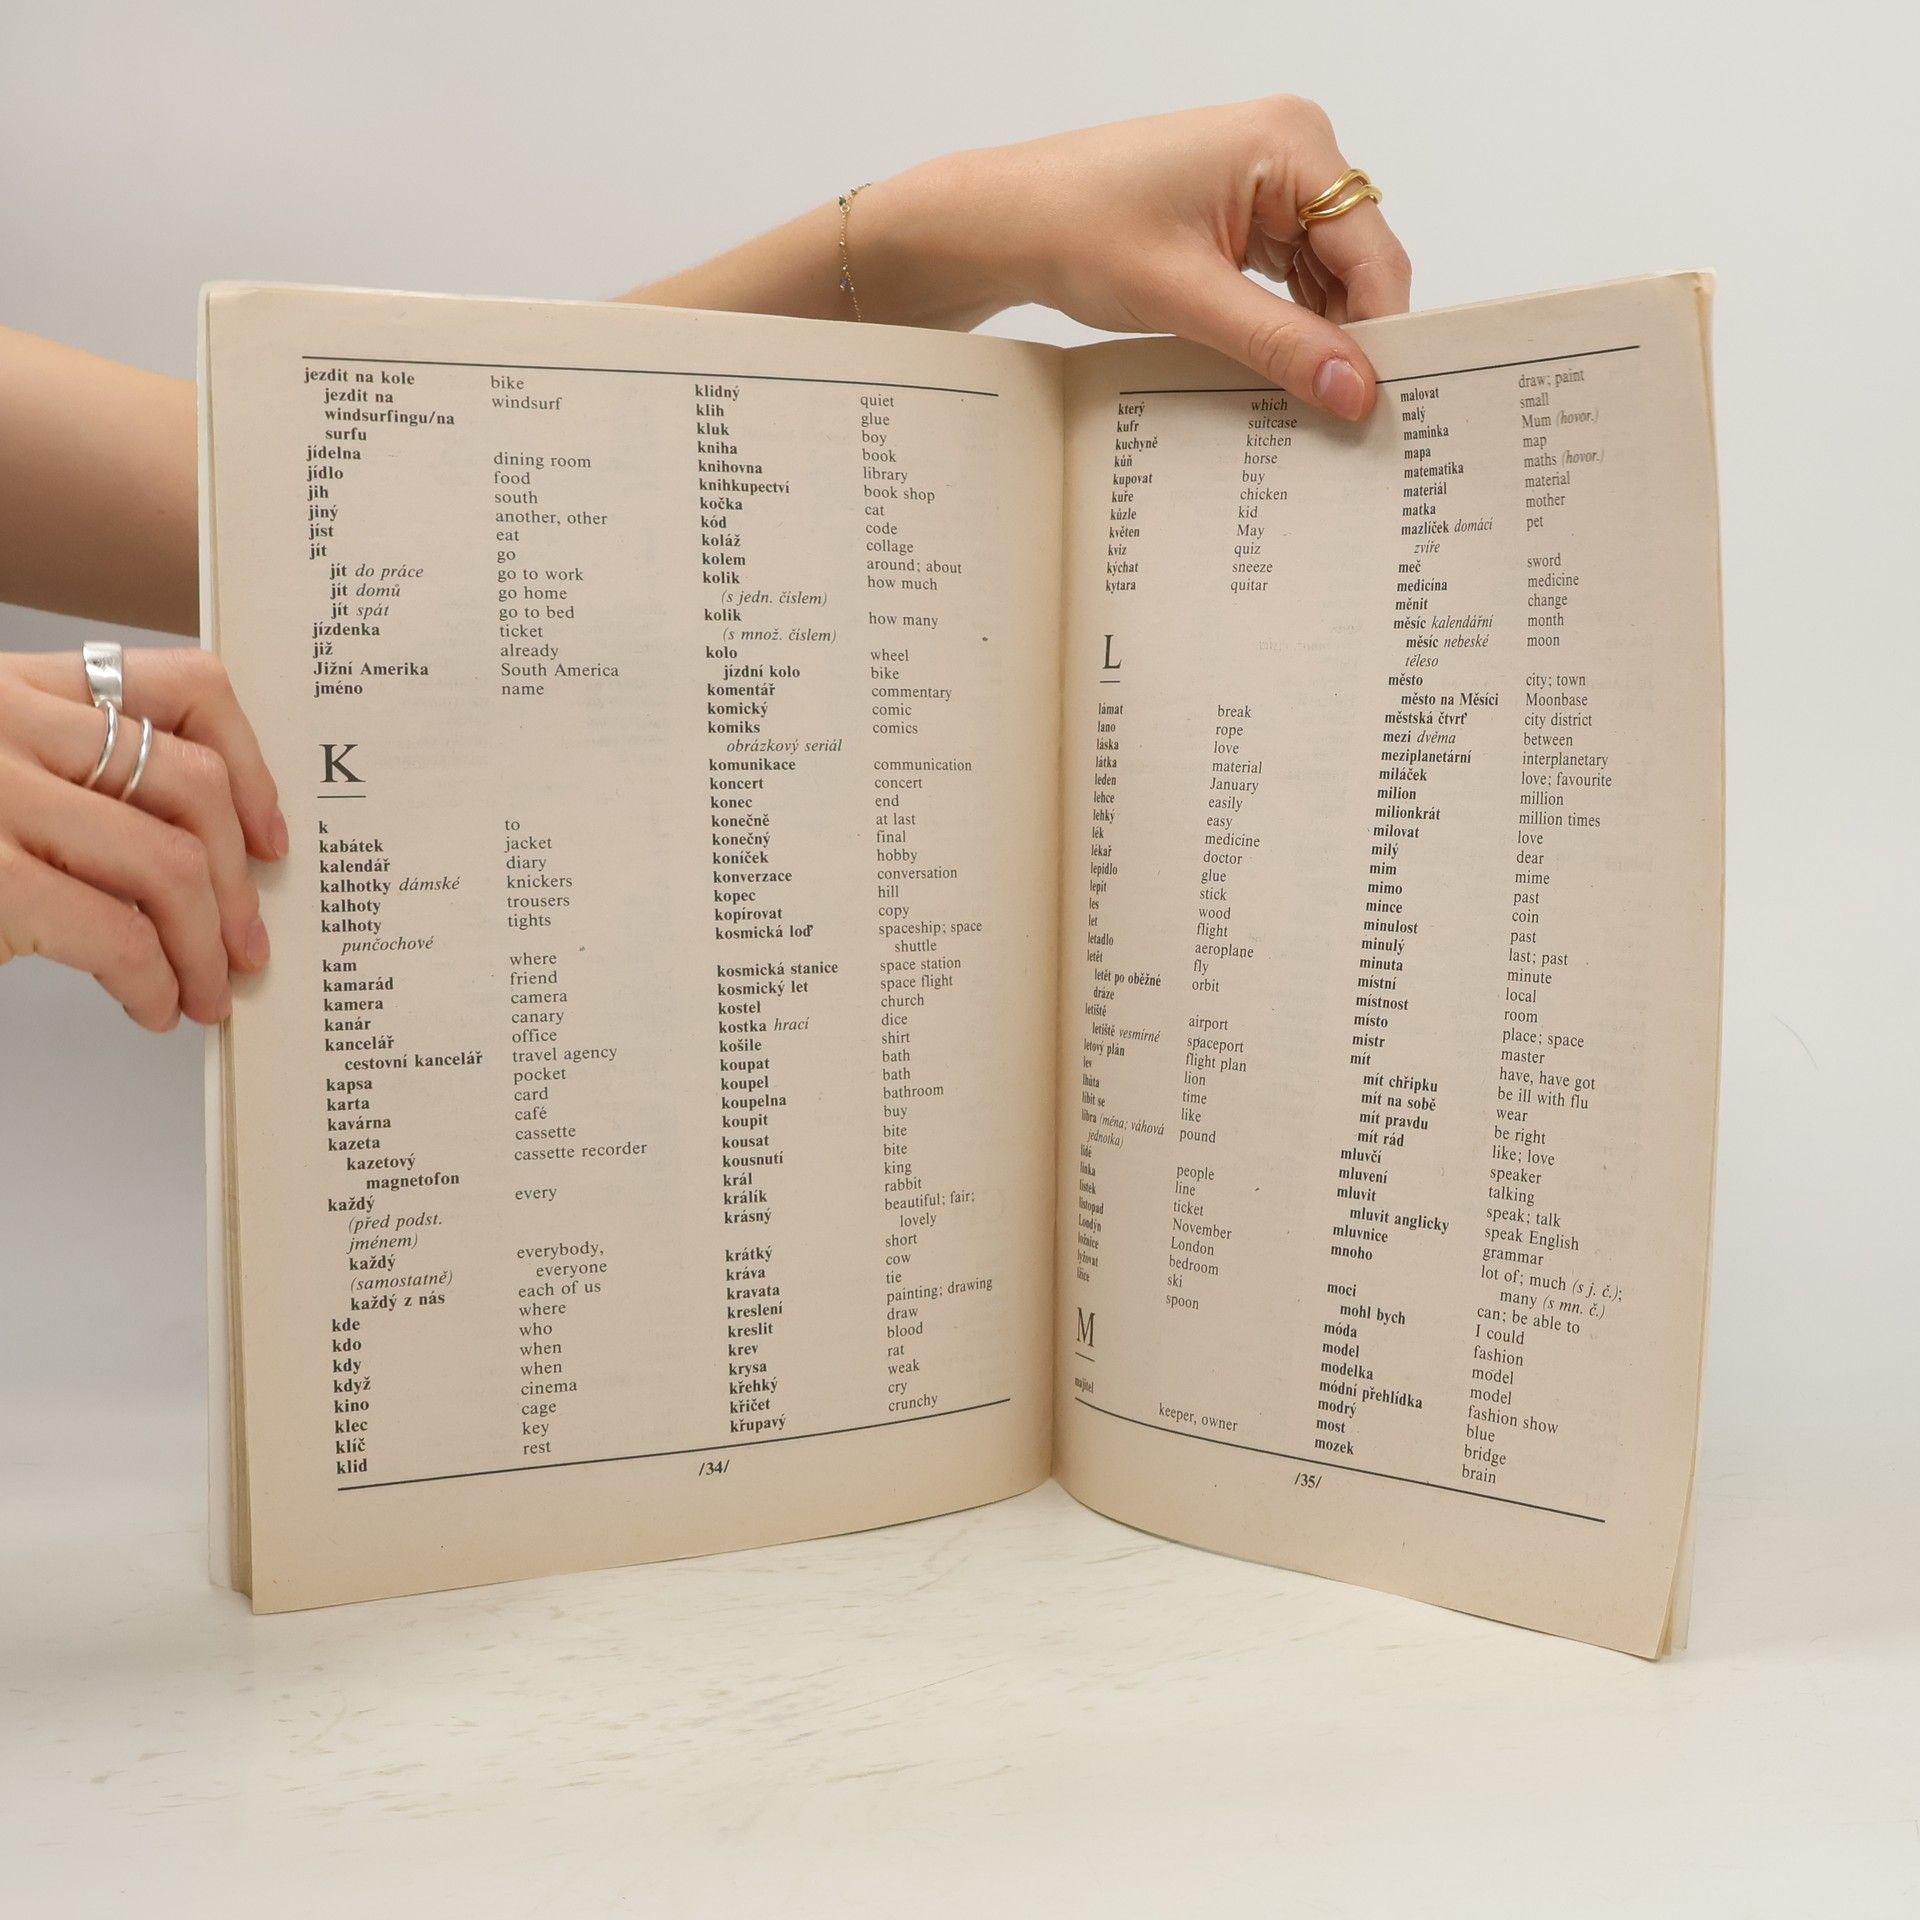 jezdit na kole bike
jezdit na windsurf
windsurfingu/na
surfu
jídelna dining room
jídlo food
jih south
jiný another, other
jíst eat
jít go
jít do práce go to work
jít domů go home
jít spát go to bed
jízdenka ticket
již already
Jižní Amerika South America
jméno name
K
k to
kabátek jacket
kalendář diary
kalhotky dámské knickers
kalhoty trousers
kalhoty tights
punčochové
kam where
kamarád friend
kamera camera
kanár canary
kancelář office
cestovní kancelář travel agency
kapsa pocket
karta card
kavárna café
kazeta cassette
kazetový cassette recorder
magnetofon
každý every
(před podst.
jménem)
každý everybody,
(samostatně) everyone
každý z nás each of us
kde where
kdo who
kdy when
když when
kino cinema
klec cage
klíč key
klid rest
klidný quiet
klih glue
kluk boy
kniha book
knihovna library
knihkupectví book shop
kočka cat
kód code
koláž collage
kolem around; about
kolik how much
(s jedn. číslem)
kolik how many
(s množ. číslem)
kolo wheel
jízdní kolo bike
komentář commentary
komický comic
komiks comics
obrázkový seriál
komunikace communication
koncert concert
konec end
konečně at last
konečný final
koníček hobby
konverzace conversation
kopec hill
kopírovat copy
kosmická loď spaceship; space
shuttle
kosmická stanice space station
kosmický let space flight
kostel church
kostka hrací dice
košile shirt
koupat bath
koupel bath
koupelna bathroom
koupit buy
kousat bite
kousnutí bite
král king
králík rabbit
krásný beautiful; fair;
lovely
krátký short
kráva cow
kravata tie
kreslení painting; drawing
kreslit draw
krev blood
krysa rat
křehký weak
křičet cry
křupavý crunchy
/34/
který which
kufr suitcase
kuchyně kitchen
kůň horse
kupovat buy
kuře chicken
kůzle kid
květen May
kviz quiz
kýchat sneeze
kytara quitar
L
lámat break
lano rope
láska love
látka material
leden January
lehce easily
lehký easy
lék medicine
lékař doctor
lepidlo glue
lepit stick
les wood
let flight
letadlo aeroplane
letět fly
letět po oběžné orbit
dráze
letiště airport
letiště vesmírné spaceport
letový plán flight plan
lev lion
lhůta time
líbit se like
libra (měna; váhová pound
jednotka)
lidé people
linka line
lístek ticket
listopad November
Londýn London
ložnice bedroom
lyžovat ski
lžíce spoon
M
majitel keeper, owner
malovat draw; paint
malý small
maminka Mum (hovor.)
mapa map
matematika maths (hovor.)
materiál material
matka mother
mazlíček domácí pet
zvíře
meč sword
medicína medicine
měnit change
měsíc kalendářní month
měsíc nebeské moon
těleso
město city; town
město na Měsíci Moonbase
městská čtvrť city district
mezi dvěma between
meziplanetární interplanetary
miláček love; favourite
milion million
milionkrát million times
milovat love
milý dear
mim mime
mimo past
mince coin
minulost past
minulý last; past
minuta minute
místní local
místnost room
místo place; space
mistr master
mít have, have got
mít chřipku be ill with flu
mít na sobě wear
mít pravdu be right
mít rád like; love
mluvčí speaker
mluvení talking
mluvit speak; talk
mluvit anglicky speak English
mluvnice grammar
mnoho lot of; much (s j. č.);
many (s mn. č.)
moci can; be able to
mohl bych I could
móda fashion
model model
modelka model
módní přehlídka fashion show
modrý blue
most bridge
mozek brain
/35/